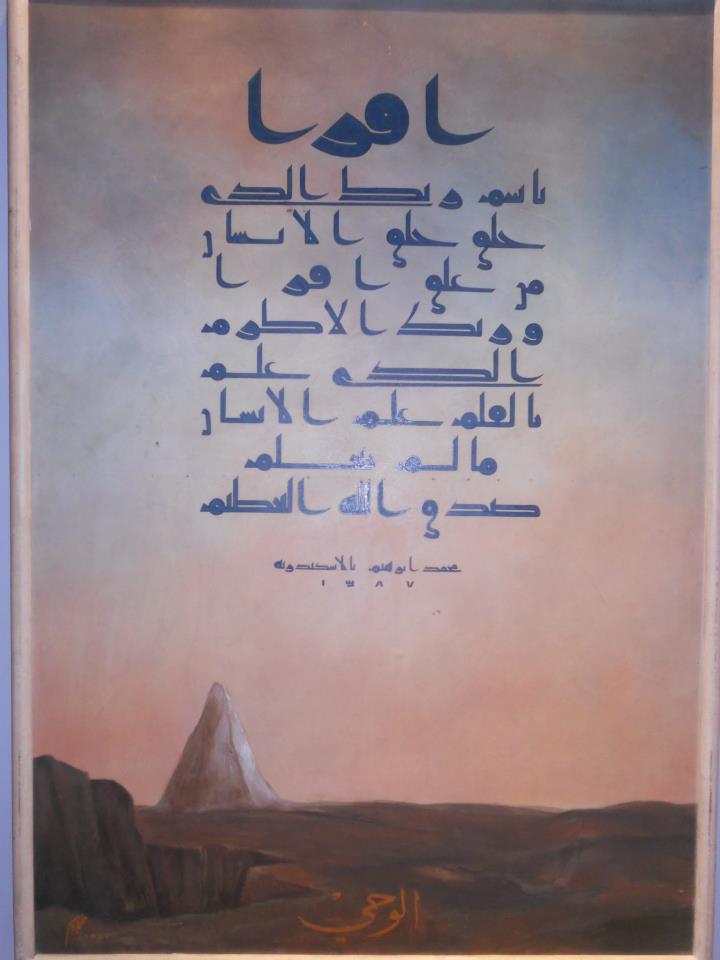 اقرا
باسم ربك الذي
خلق خلق الانسان
من علق اقرا
وربك الاكرم
الذي علم
بالقلم علم الانسان
ما لم يعلم
صدق الله العظيم
محمد ابرهيم بالاسكندرية
١٣٨٧
الوحي